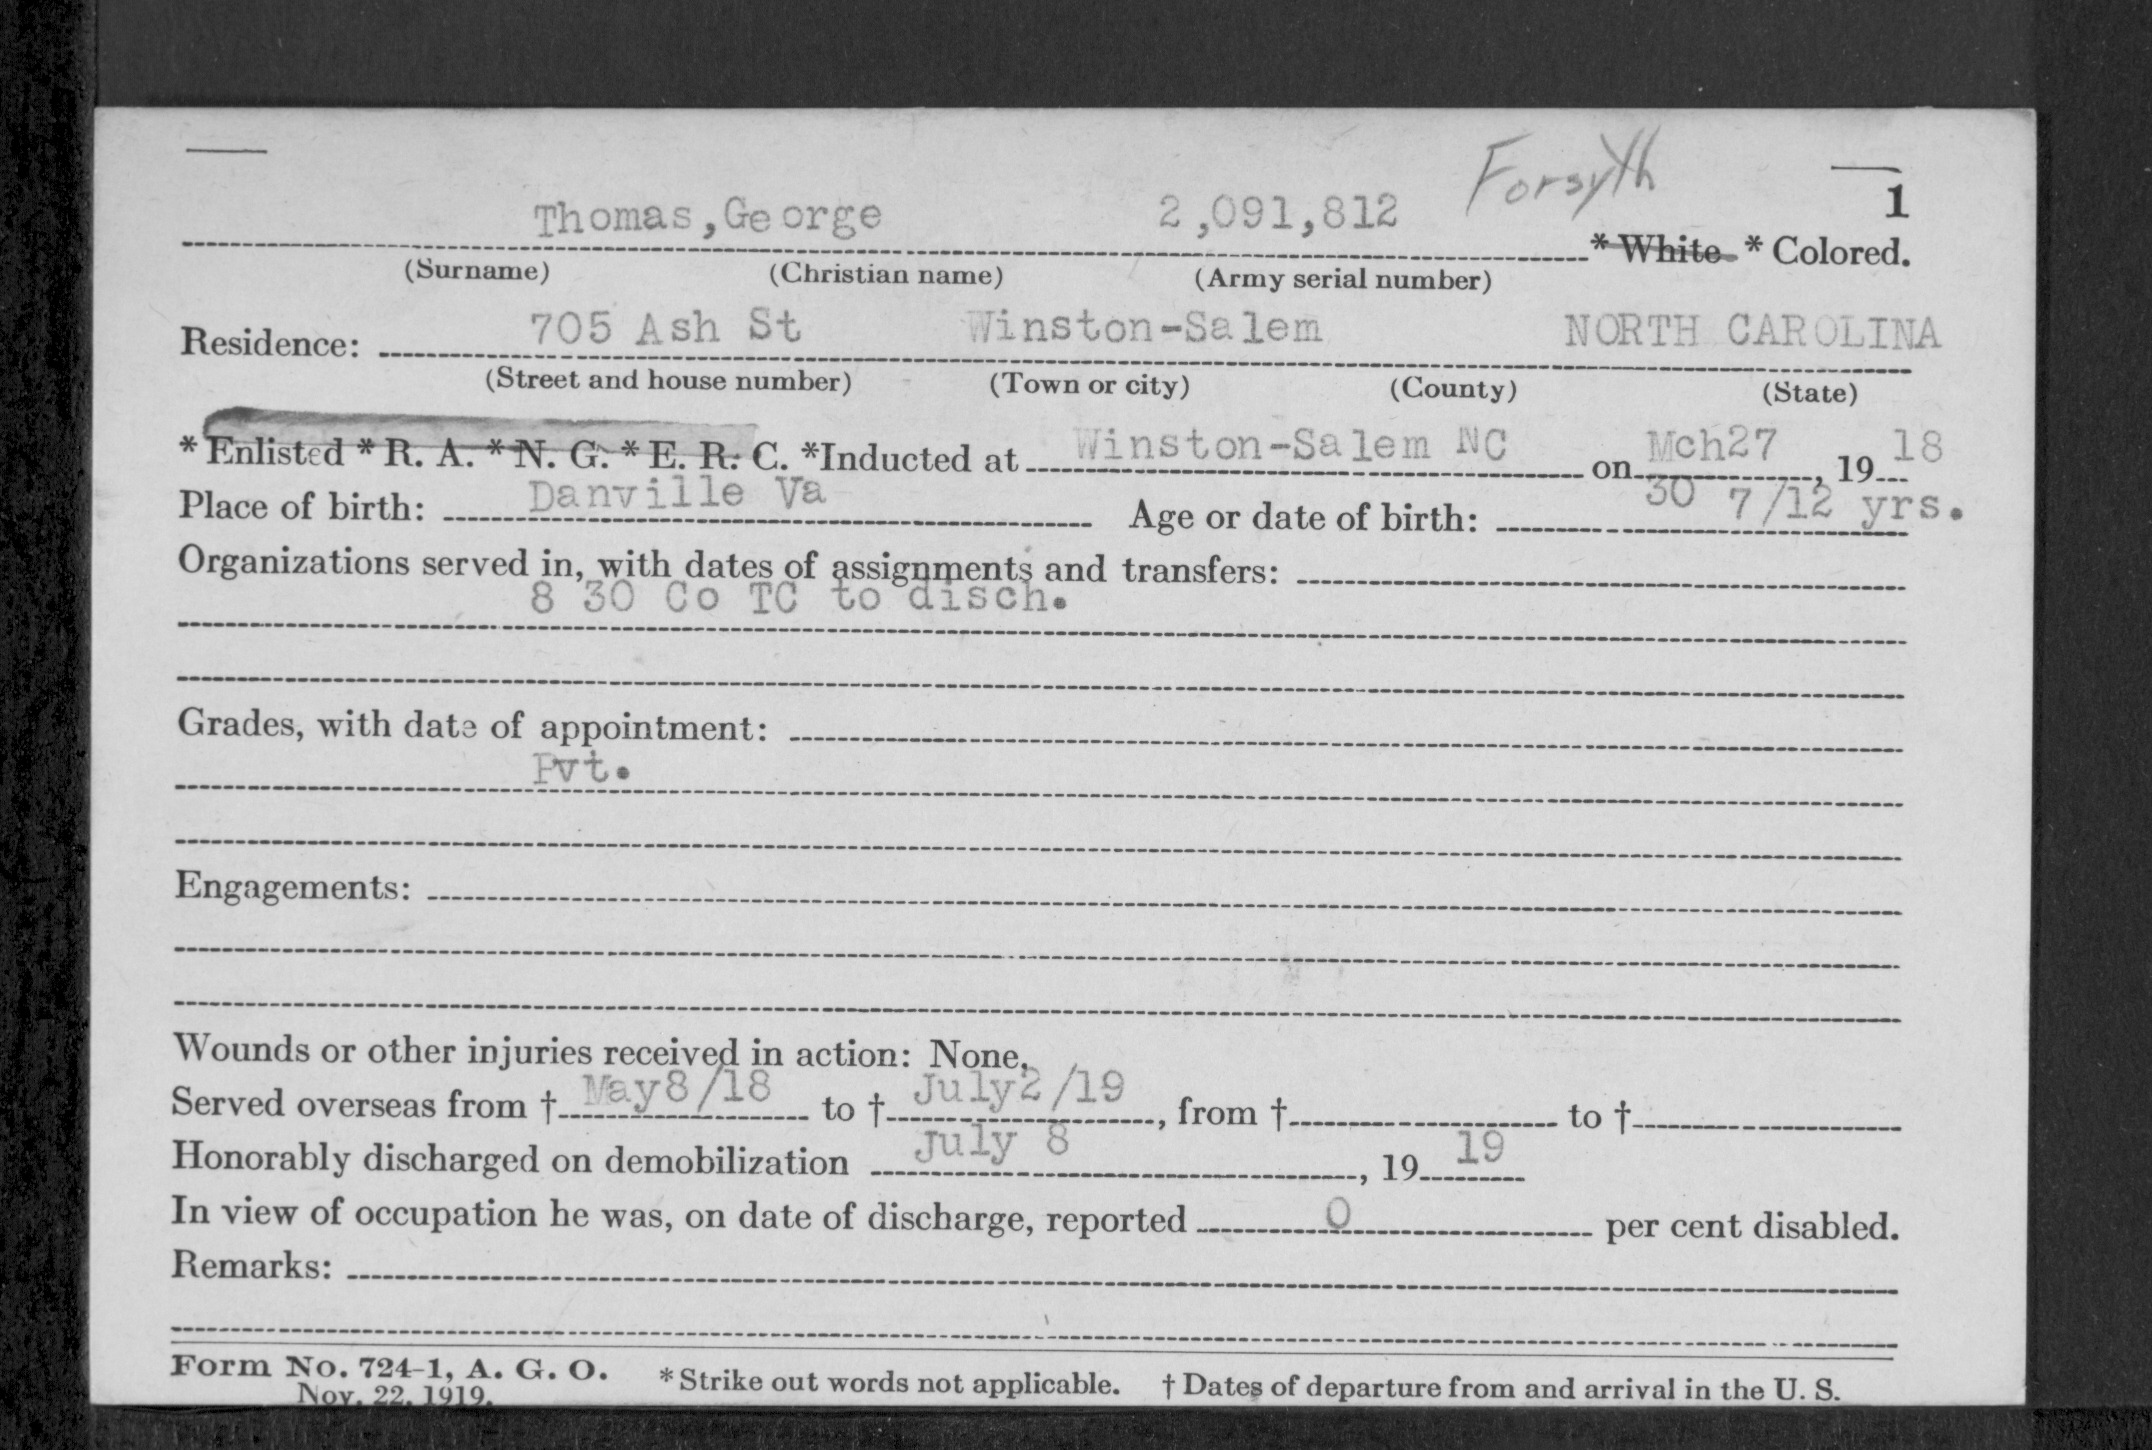 Forsyth
1
Thomas,George 2,091,812 * White * Colored.
(Surname) (Christian name) (Army serial number)
705 Ash St Winston-Salem NORTH CAROLINA
Residence:
(Street and house number) (Town or city) (County) (State)
* Enlisted * R. A. * N. G. * E. R. C. *Inducted at Winston-Salem NC on Mch27, 19 18
Place of birth: Danville Va Age or date of birth: 30 7/12 yrs.
Organizations served in, with dates of assignments and transfers:
8 30 Co TC to disch.
Grades, with date of appointment:
Pvt.
Engagements:
Wounds or other injuries received in action: None.
Served overseas from † May8/18 to † July2/19, from † to †
Honorably discharged on demobilization July 8, 19 19
In view of occupation he was, on date of discharge, reported 0 per cent disabled.
Remarks:
Form No. 724-1, A. G. O. * Strike out words not applicable. † Dates of departure from and arrival in the U. S.
Nov. 22, 1919.